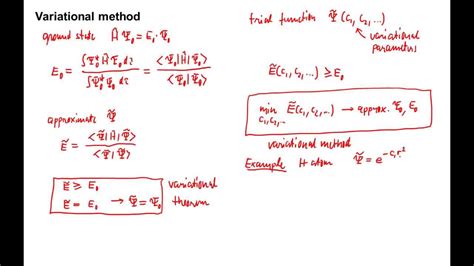 Variational method
ground state Ĥ Ψ₀ = E₀·Ψ₀
E₀ = ∫Ψ₀* Ĥ Ψ₀ dτ / ∫Ψ₀* Ψ₀ dτ = <Ψ₀|Ĥ|Ψ₀> / <Ψ₀|Ψ₀>
approximate Ψ̃
Ẽ = <Ψ̃|Ĥ|Ψ̃> / <Ψ̃|Ψ̃>
Ẽ ≥ E₀ variational
Ẽ = E₀ → Ψ̃ = Ψ₀ theorem
trial function Ψ̃(c₁, c₂, ...)
variational
parameters
Ẽ(c₁, c₂, ...) ≥ E₀
min Ẽ(c₁, c₂, ...) → approx. Ψ₀, E₀
c₁, c₂, ...
variational method
Example H atom Ψ̃ = e^(-c₁r²)